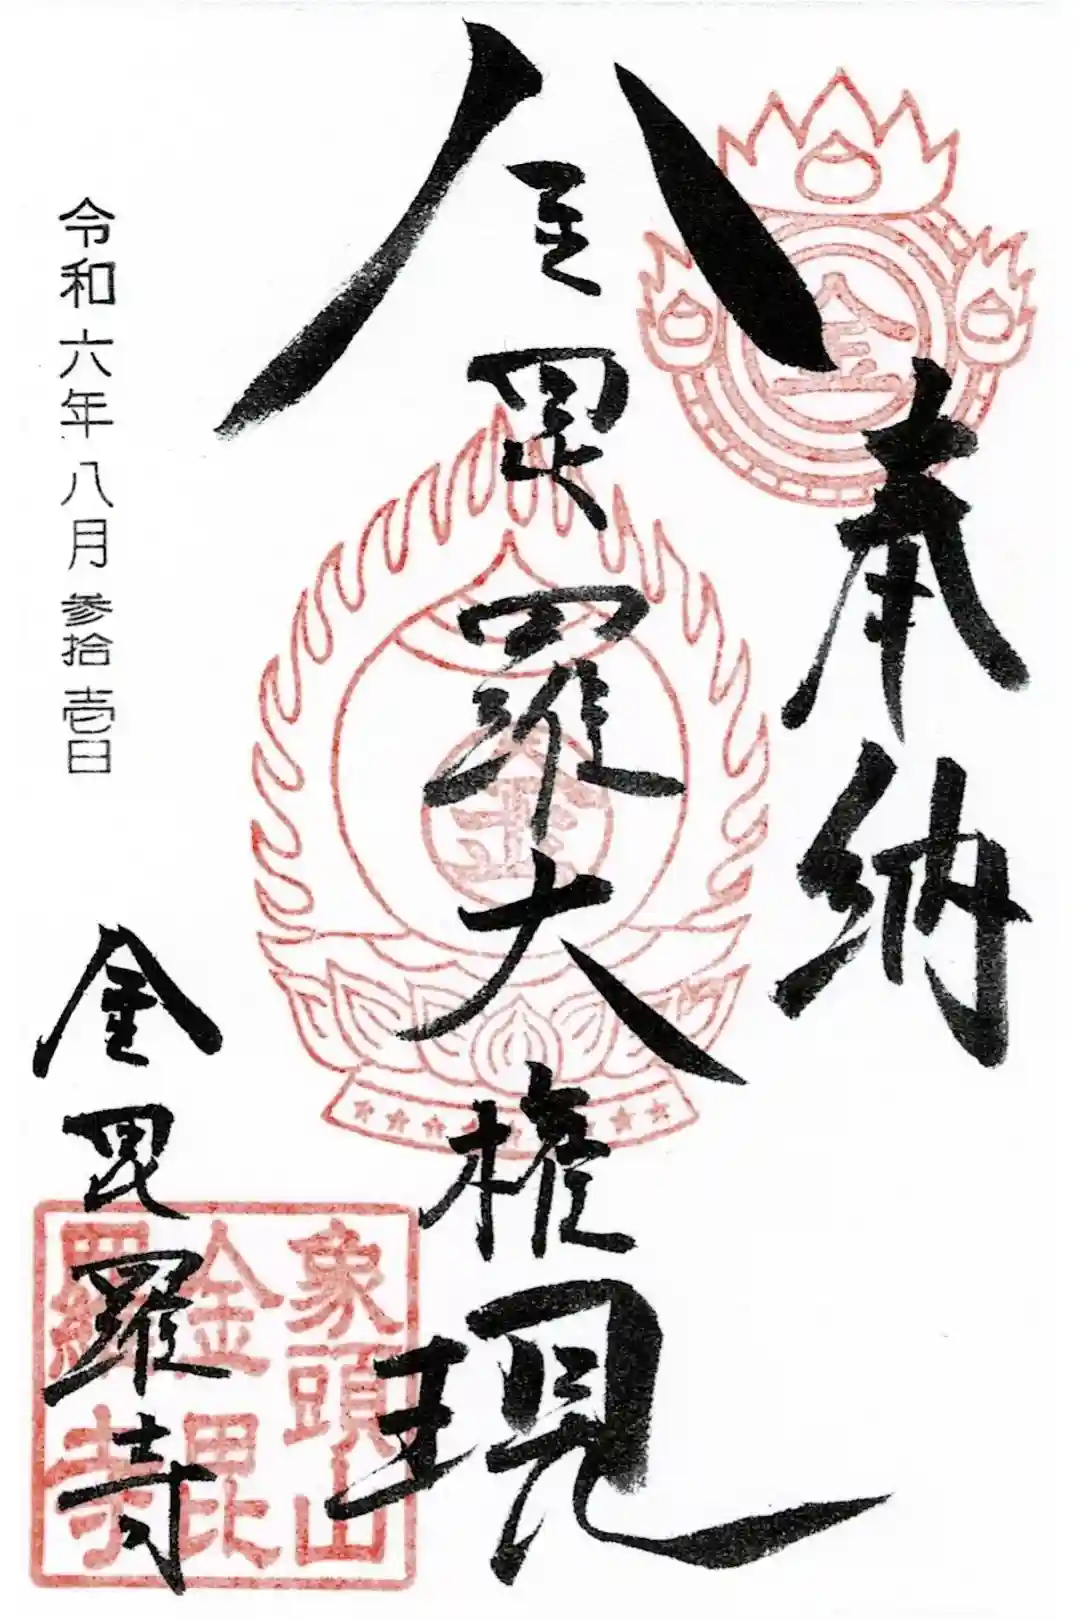 奉納
金毘羅大権現
令和六年八月参拾壱日
金毘羅寺
象頭山
金毘
羅寺
金
金